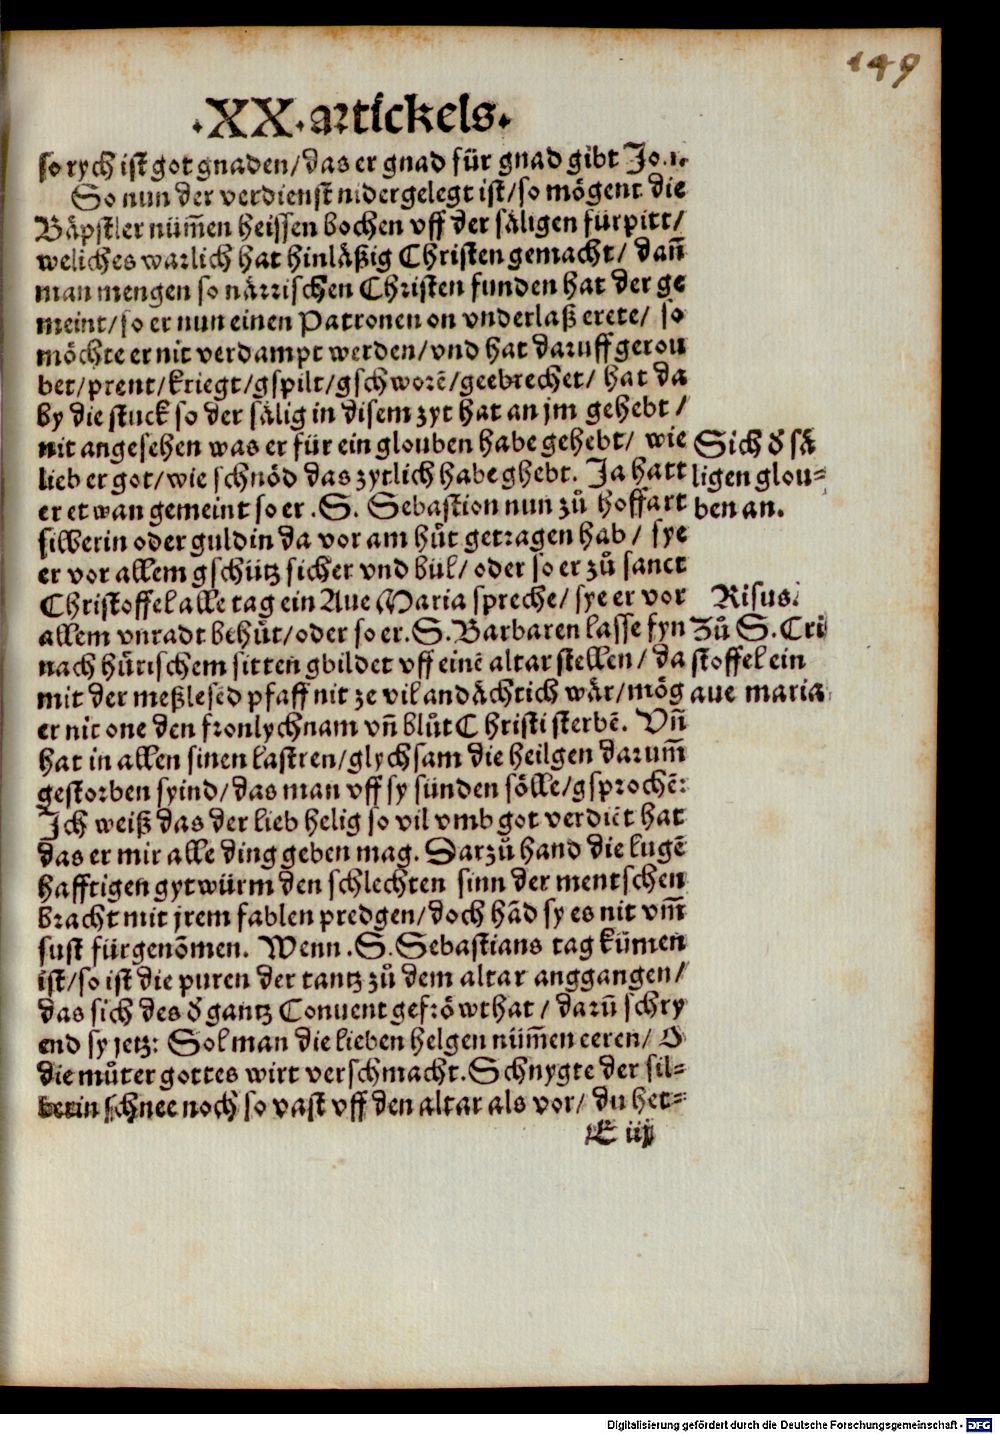 149
.XX.artickels.
so rych ist got gnaden/das er gnad für gnad gibt Jo.1.
So nun der verdienst nidergelegt ist/so mögent die
Bäpstler nüm̄en heissen bochen vff der säligen fürpitt/
weliches warlich hat hinläßig Christen gemacht/ dan̄
man mengen so närrischen Christen funden hat der ge
meint/so er nun einen Patronen on vnderlaß erete/ so
möchte er nit verdampt werden/vnd hat daruff gerou
bet/prent/kriegt/gspilt/gschworē/geebrechet/ hat da
by die stuck so der sälig in disem zyt hat an jm gehebt/
nit angesehen was er für ein glouben habe gehebt/ wie
lieb er got/wie schnöd das zytlich habe ghebt. Ja hatt
er etwan gemeint so er .S. Sebastion nun zů hoffart
silberin oder guldin da vor am hůt getragen hab/ sye
er vor allem gschütz sicher vnd bül/oder so er zů sanct
Christoffel alle tag ein Aue Maria spreche/sye er vor
allem vnradt behůt/oder so er.S.Barbaren lasse fyn
nach hůrischem sitten gbildet vff einē altar stellen/da
mit der meßlesēd pfaff nit ze vil andächtich wär/mög
er nit one den fronlychnam vn̄ blůt Christi sterbē. Vn̄
hat in allen sinen lastren/glychsam die heilgen darum̄
gestorben syind/das man vff sy sünden sölle/gsprochē:
Ich weiß das der lieb helig so vil vmb got verdiēt hat
das er mir alle ding geben mag. Darzů hand die lugē
hafftigen gytwürm den schlechten sinn der mentschen
bracht mit jrem fablen predgen/doch hād sy es nit vm̄
sust fürgenōmen. Wenn .S.Sebastians tag kümen
ist/so ist die puren der tantz zů dem altar anggangen/
das sich des d̄ gantz Conuent gefröwt hat/ darū schry
end sy jetz: Sol man die lieben helgen nüm̄en eeren/ O
die můter gottes wirt verschmacht.Schnygte der sil-
berin schnee noch so vast vff den altar als vor/ du het-
E iij
Sich d̄ sä
ligen glou-
ben an.
Risus.
Zů S.Cri
stoffel ein
aue maria
Digitalisierung gefördert durch die Deutsche Forschungsgemeinschaft - DFG